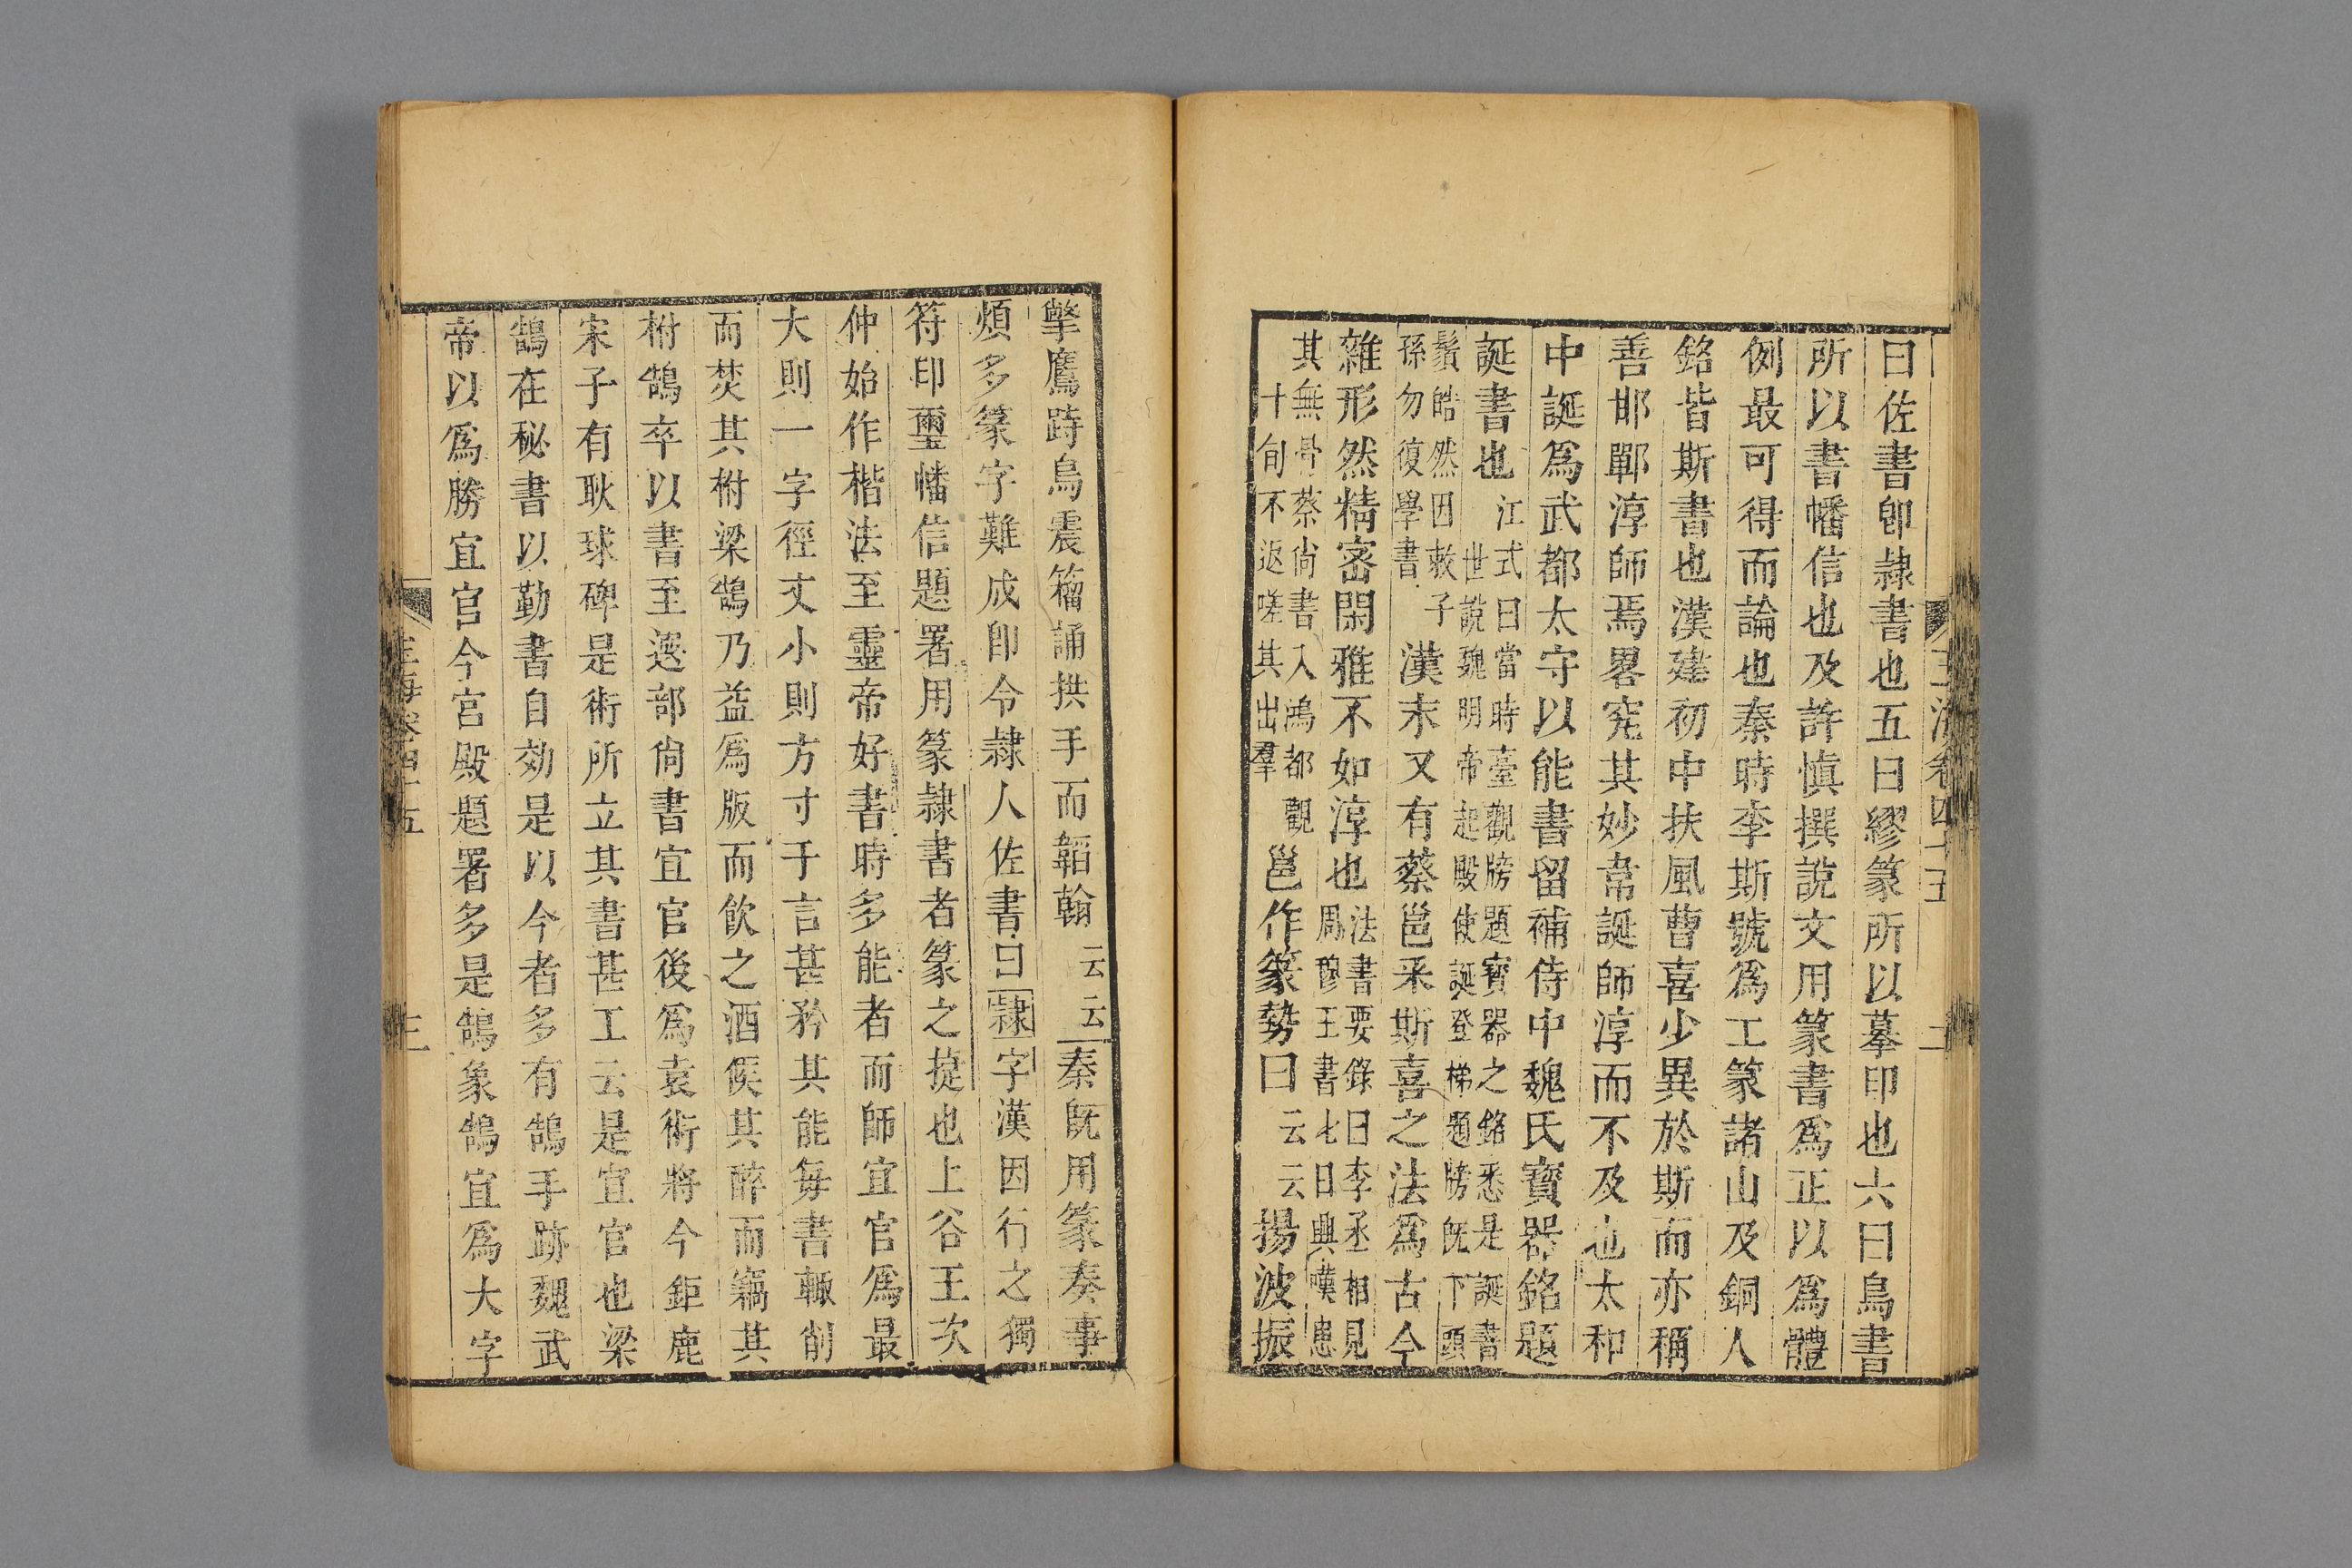 玉海卷四十五
曰佐書卽隷書也五曰繆篆所以摹印也六曰鳥書
所以書幡信也及許愼撰說文用篆書爲正以爲體
例最可得而論也秦時李斯號爲工篆諸山及銅人
銘皆斯書也漢建初中扶風曹喜少異於斯而亦稱
善邯鄲淳師焉畧究其妙韋誕師淳而不及也太和
中誕爲武都太守以能書留補侍中魏氏寶器銘題
誕書也江式曰當時臺觀牓題寶器之銘悉是誕書
世說魏明帝起殿使誕登梯題牓旣下頭
鬢皓然因敕子
孫勿復學書
漢末又有蔡邕釆斯喜之法爲古今
雜形然精宻閑雅不如淳也法書要錄曰李丞相見
周穆王書七日興嘆患
其無骨蔡尙書入鴻都觀
十旬不返嗟其出羣
邕作篆勢曰云云揚波振
擊鷹跱鳥震籀誦拱手而韜翰云云秦旣用篆奏事
煩多篆字難成卽令隷人佐書曰隷字漢因行之獨
符印璽幡信題署用篆隷書者篆之捷也上谷王次
仲始作楷法至靈帝好書時多能者而師宜官爲最
大則一字徑丈小則方寸千言甚矜其能每書輒削
而焚其柎梁鵠乃益爲版而飮之酒候其醉而竊其
柎鵠卒以書至選部尙書宜官後爲袁術將今鉅鹿
宋子有耿球碑是術所立其書甚工云是宜官也梁
鵠在秘書以勤書自効是以今者多有鵠手跡魏武
帝以爲勝宜官今宫殿題署多是鵠象鵠宜爲大字
玉海卷四十五